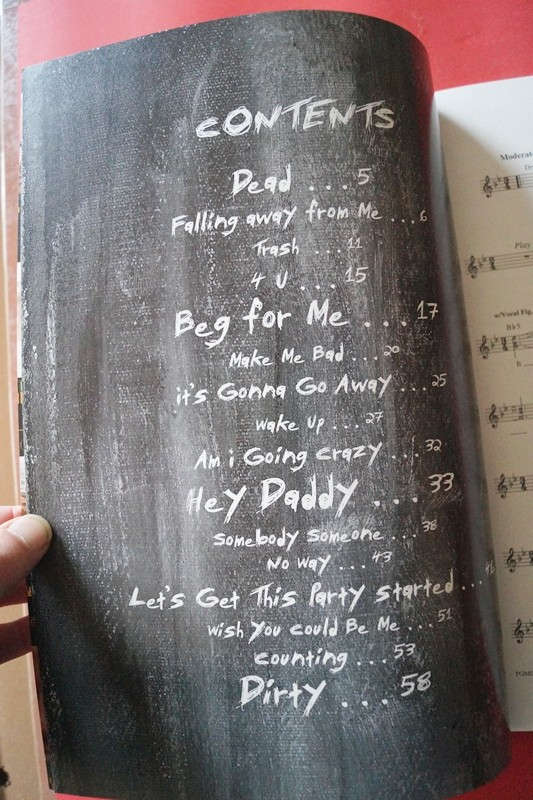 CONTENTS
Dead ... 5
Falling away from Me ... 6
Trash ... 11
4 U ... 15
Beg for Me ... 17
Make Me Bad ... 20
it's Gonna Go Away ... 25
wake Up ... 27
Am i Going crazy ... 32
Hey Daddy ... 33
somebody someone ... 38
No Way ... 43
Let's Get This Party started ...
wish You could Be Me ... 51
counting ... 53
Dirty ... 58
Moderat
Play
w/Vocal Fig.
Bb5
It
PGM0